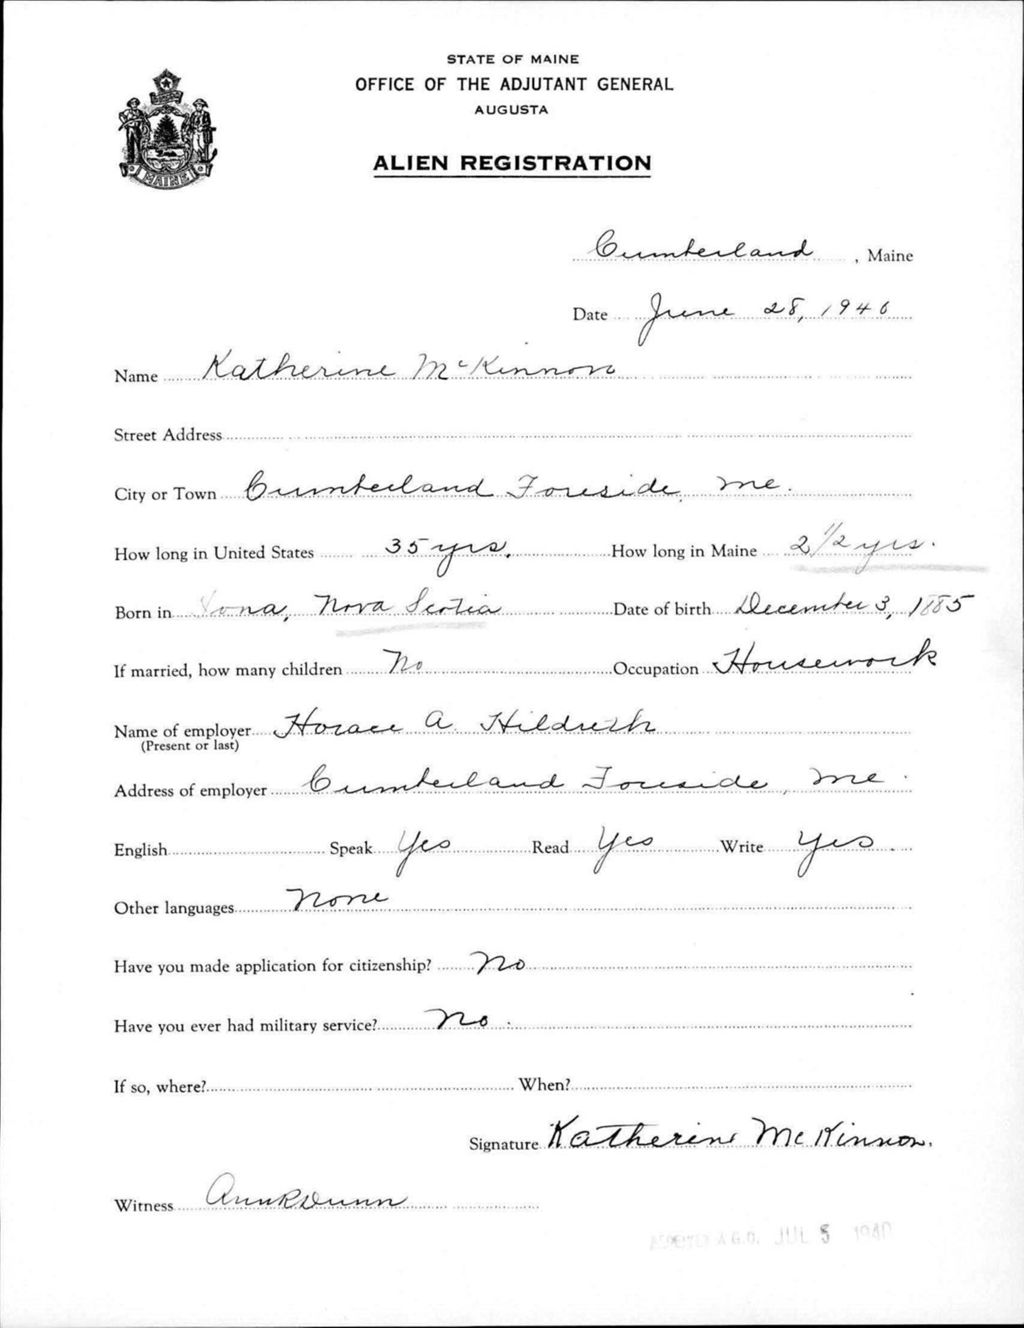 STATE OF MAINE
OFFICE OF THE ADJUTANT GENERAL
AUGUSTA
ALIEN REGISTRATION
MAINE
Cumberland, Maine
Date June 28, 1940
Name Katherine McKinnon
Street Address
City or Town Cumberland Foreside, Me.
How long in United States 35 yrs. How long in Maine 2 1/2 yrs.
Born in Iona, Nova Scotia Date of birth December 3, 1885
If married, how many children No Occupation Housework
Name of employer Horace A. Hildreth
(Present or last)
Address of employer Cumberland Foreside, Me.
English Speak Yes Read Yes Write Yes
Other languages None
Have you made application for citizenship? No
Have you ever had military service? No.
If so, where? When?
Signature Katherine McKinnon.
Witness Ann R Dunn
A.G.O. JUL 5 1940